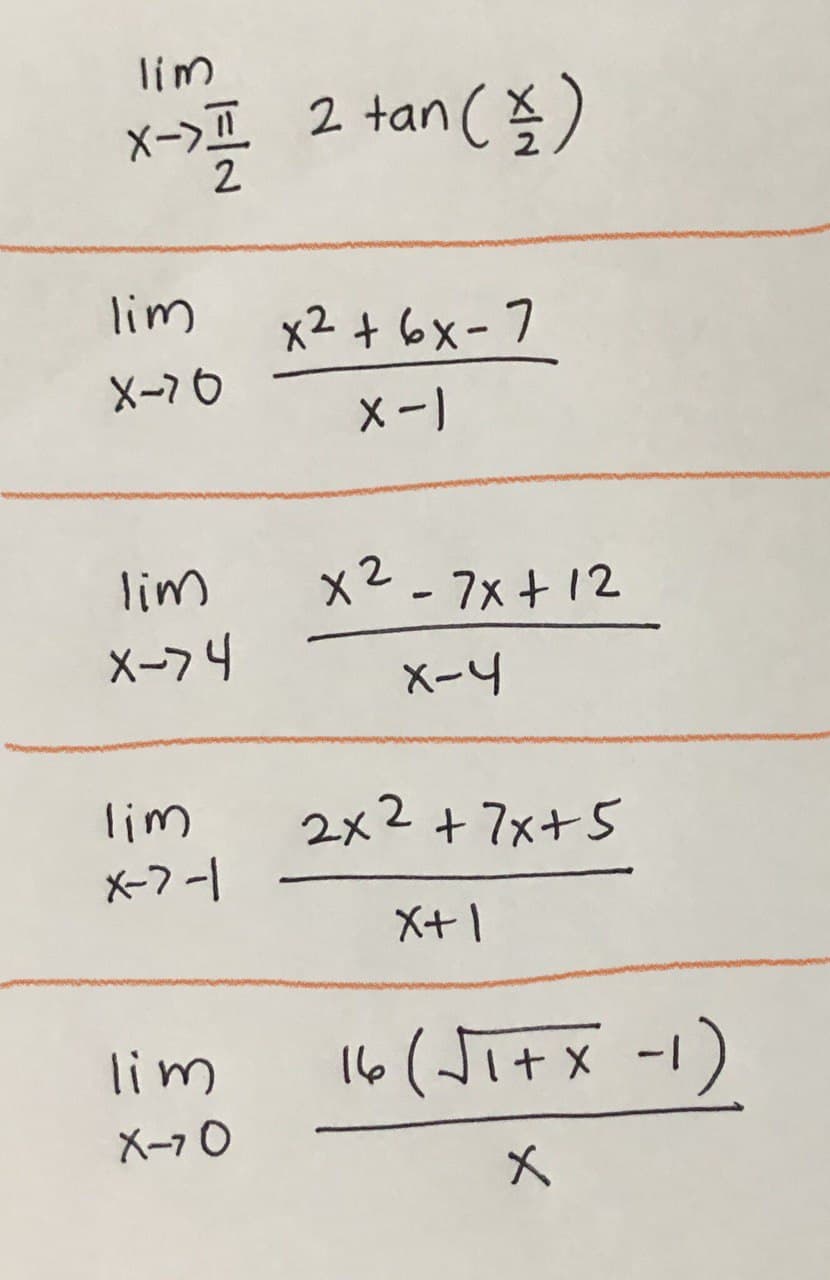 lim x->π/2 2 tan(x/2)
lim x->0 x2 + 6x - 7 / x - 1
lim x->4 x2 - 7x + 12 / x - 4
lim x->-1 2x2 + 7x + 5 / x + 1
lim x->0 16(√1+x - 1) / x